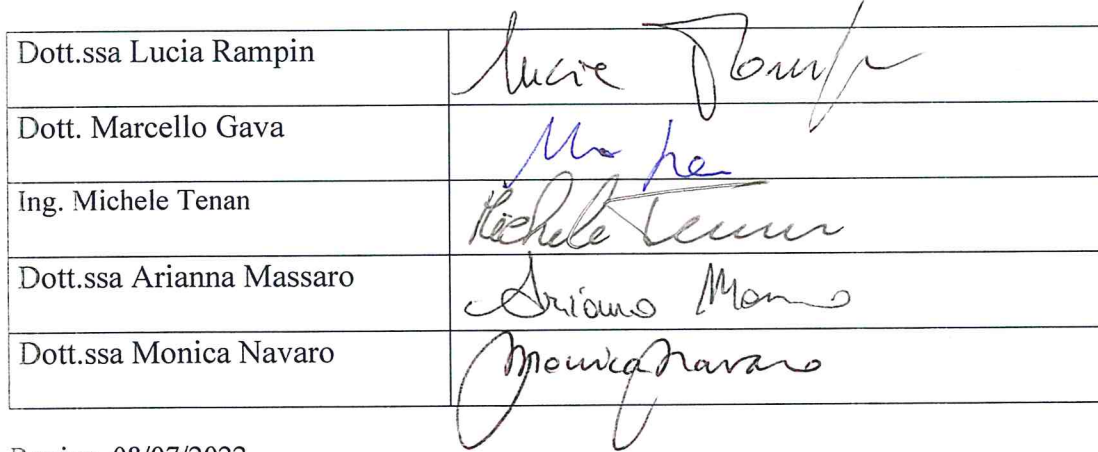 Dott.ssa Lucia Rampin Lucia
Dott. Marcello Gava
Ing. Michele Tenan Michele Tenan
Dott.ssa Arianna Massaro
Dott.ssa Monica Navaro Monica Navaro
08/07/2022